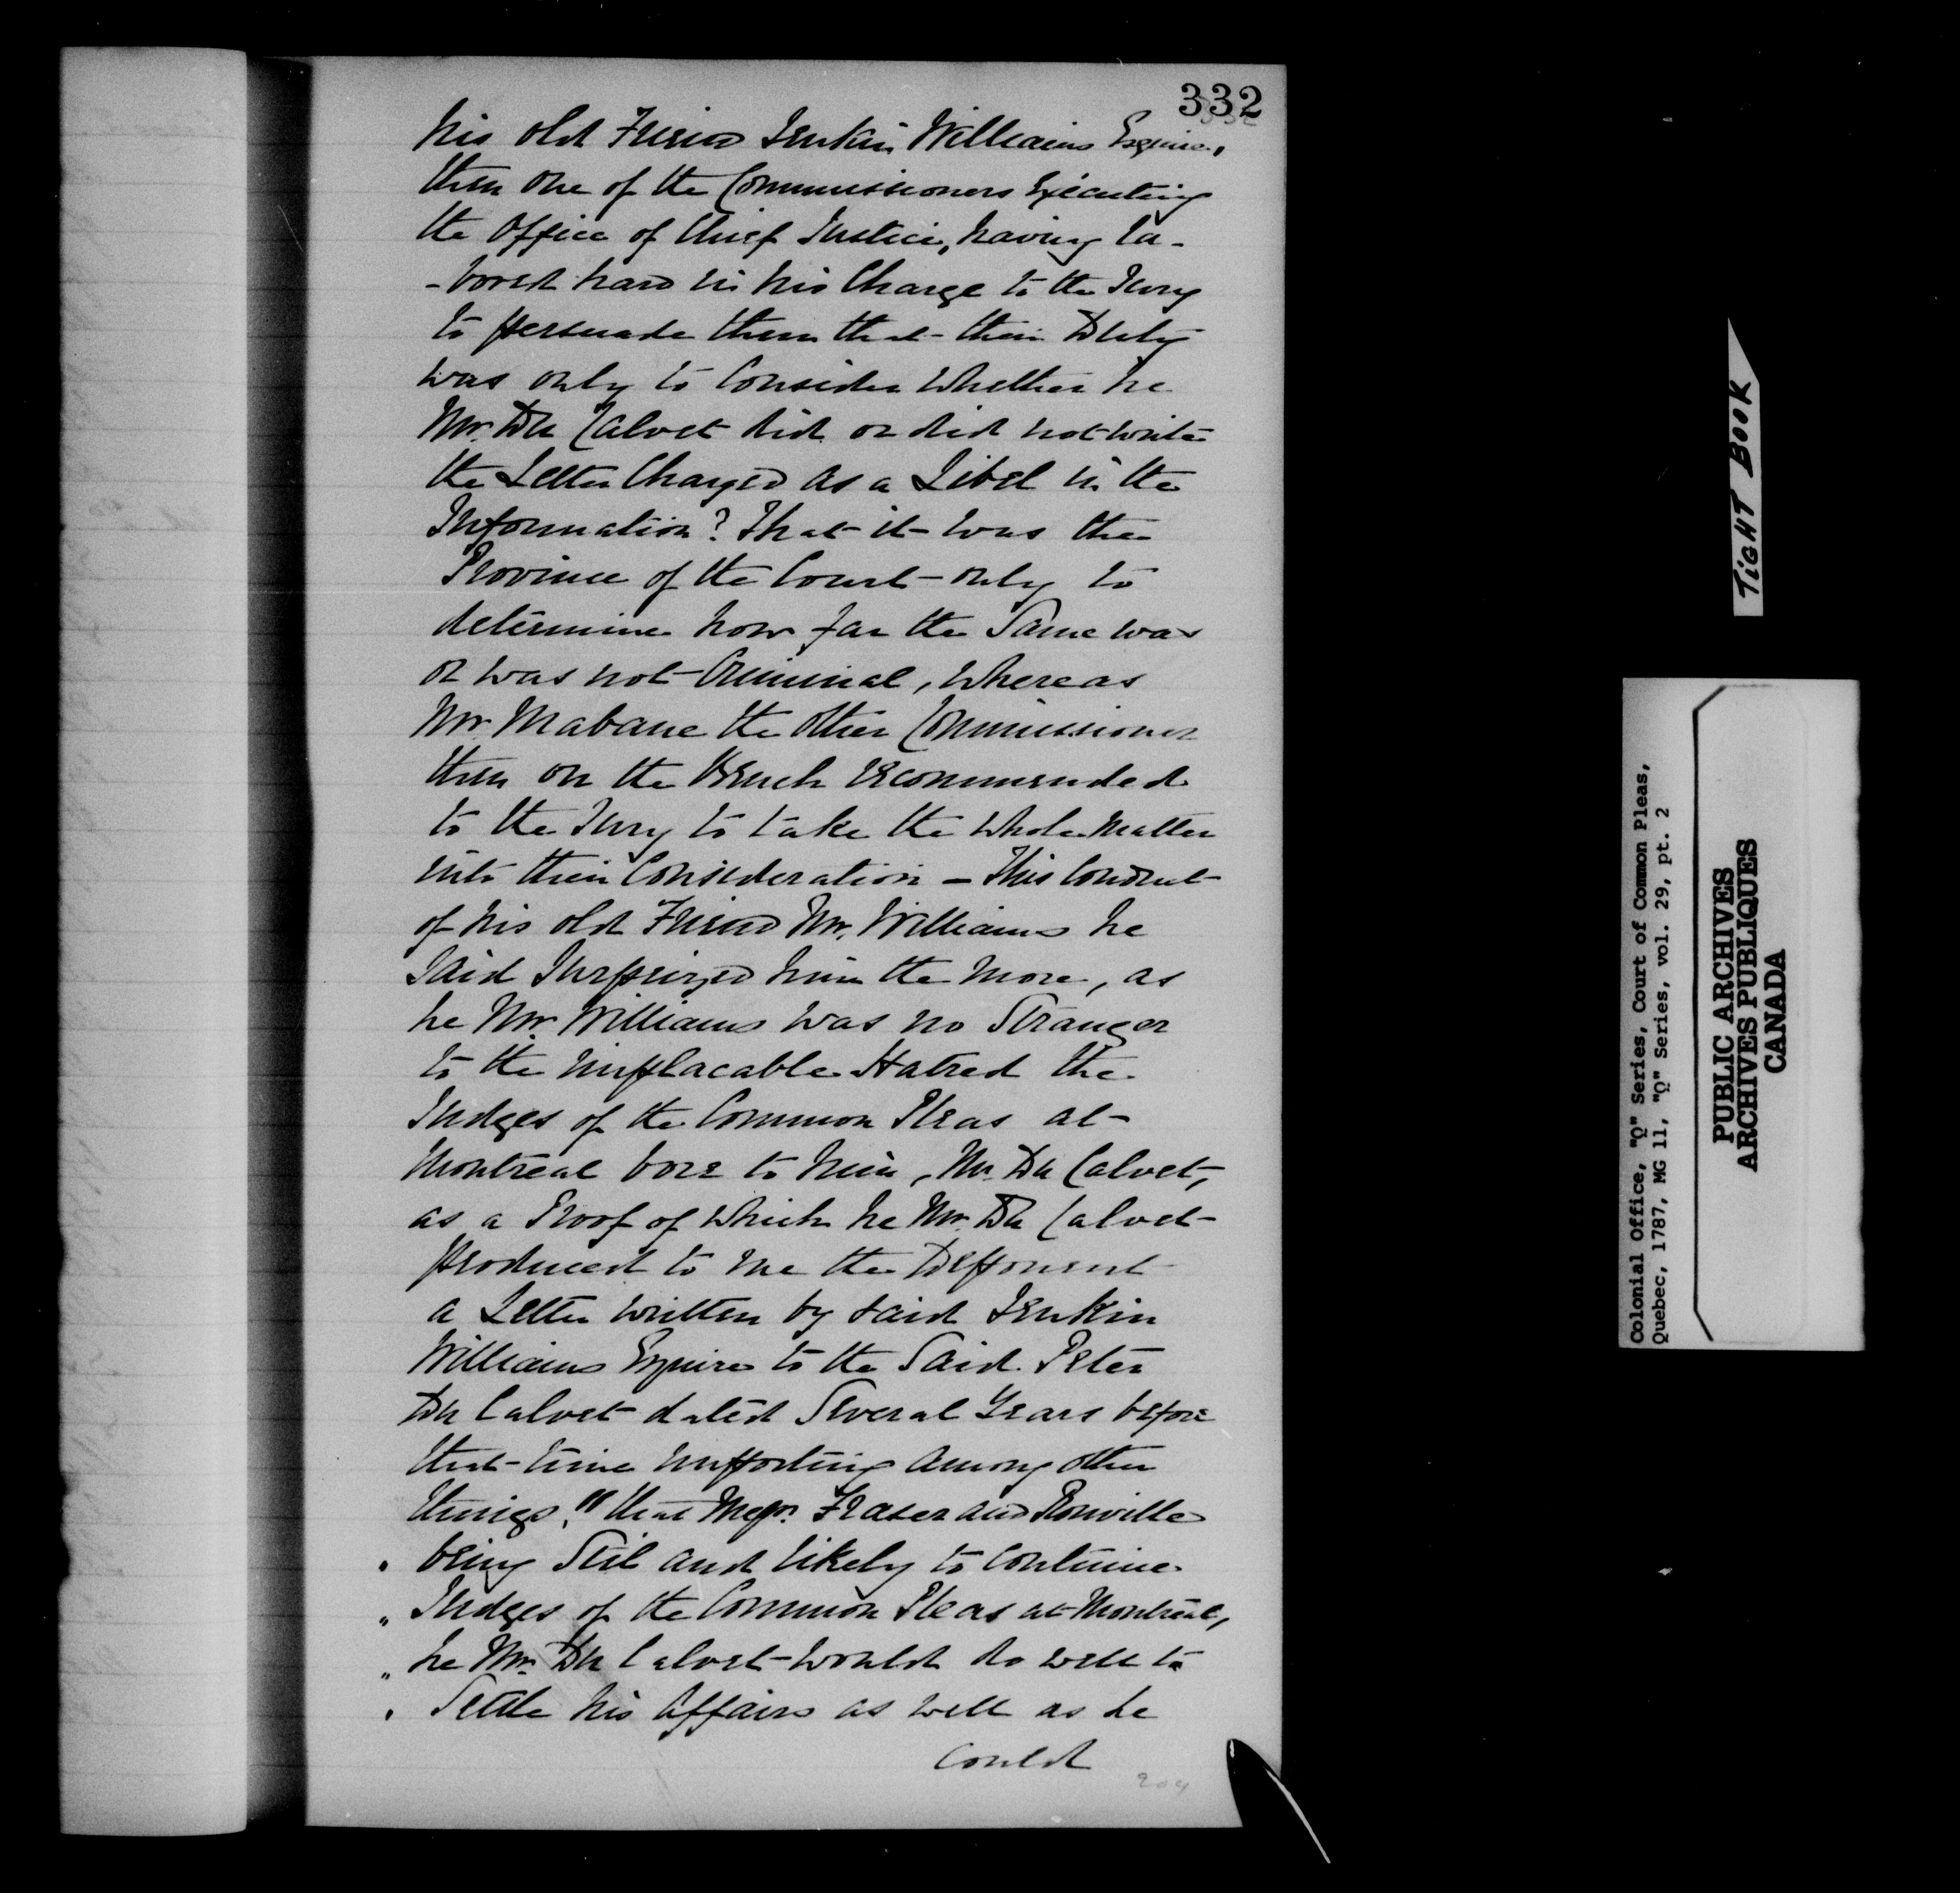 332
his old Friend Jenkin Williams Esquire,
then one of the Commissioners Executing
the Office of Chief Justice, having la-
-bored hard in his Charge to the Jury
to persuade them that their Duty
was only to Consider Whether he
Mr. Du Calvet did or did not write
the Letter Charged as a Libel in the
Information? That it was the
Province of the Court only to
determine how far the Same was
or was not Criminal, Whereas
Mr Mabane the other Commissioner
then on the Bench recommended
to the Jury to take the Whole Matter
into their Consideration - This Conduct
of his old Friend Mr. Williams he
Said Surprized him the more, as
he Mr. Williams was no Stranger
to the implacable Hatred the
Judges of the Common Pleas at
Montreal bore to him, Mr. Du Calvet,
as a Proof of Which he Mr. Du Calvet
produced to me the Deponent
a Letter written by said Jenkin
Williams Esquire to the Said Peter
Du Calvet dated Several Years before
that time importing among other
things, "that Messrs. Fraser and Rouville
" being Stil and likely to Continue
" Judges of the Common Pleas at Montreal,
" he Mr. Du Calvet would do well to
" Settle his Affairs as well as he
Could
204
TIGHT BOOK
Colonial Office, "Q" Series, Court of Common Pleas,
Quebec, 1787, MG 11, "Q" Series, vol. 29, pt. 2
PUBLIC ARCHIVES
ARCHIVES PUBLIQUES
CANADA